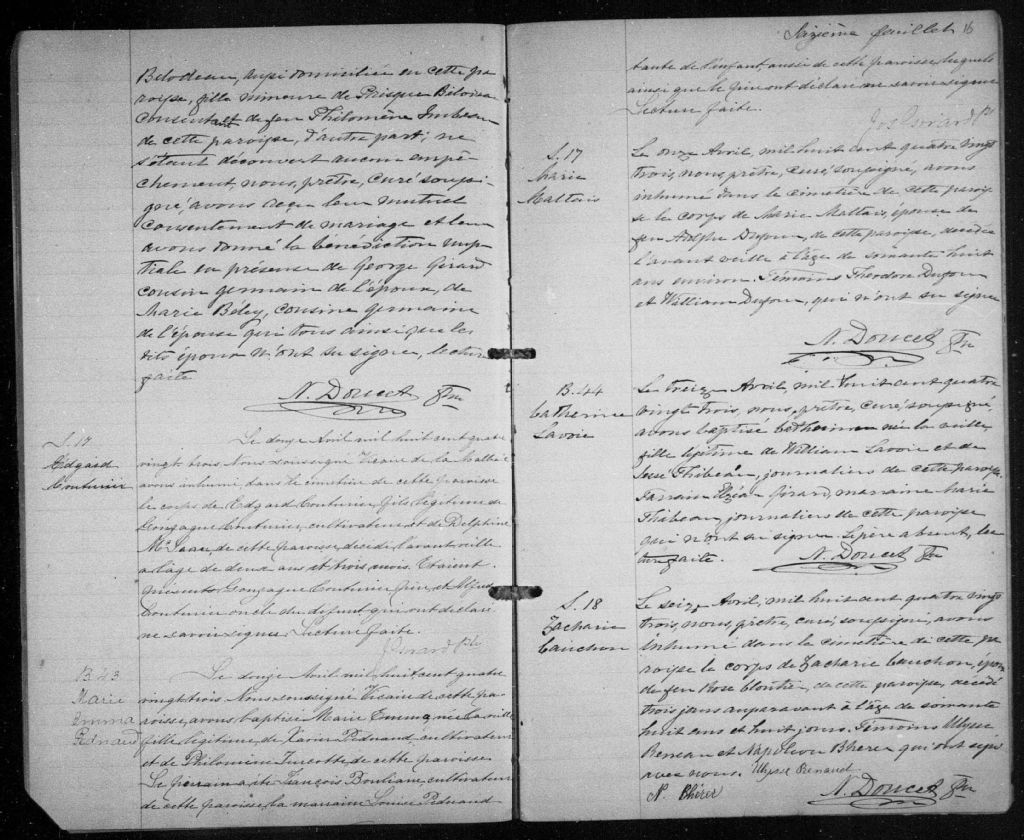 Bilodeau, aussi domiciliée en cette pa
roisse, fille mineure de Prisque Bilodeau
consentant et de feu Philomène Imbeau
de cette paroisse, d'autre part; ne
s'étant découvert aucun empê-
chement, nous, prêtre, curé soussi-
gné, avons reçu leur mutuel
consentement de mariage et leur
avons donné la bénédiction nup-
tiale en présense de George Girard
cousin germain de l'époux, de
Marie Béley, cousine germaine
de l'épouse qui tous ainsi que les
dits époux n'ont su signer, lecture
faite
N. Doucet Ptre
S. 17
Edgard
Couturier
Le douze Avril mil huit cent quatre
vingt trois Nous soussigné Vicaire de la Malbaie
avons inhumé dans le cimetière de cette paroisse
le corps de Edgard Couturier, fils légitime de
Gonzague Couturier, cultivateur et de Delphine
McLean, de cette paroisse, décédé l'avant veille
à l'âge de deux ans et trois mois. Etaient
présents Gonzague Couturier père, et Alfred
Couturier oncle du défunt qui ont déclaré
ne savoir signer Lecture faite.
J Girard Ptre
B 43
Marie
Emma
Pednaud
Le douze Avril mil huit cent quatre
vingt trois Nous soussigné Vicaire de cette pa
roisse, avons baptisé Marie Emma née la veille
fille légitime de Xavier Pednaud, cultivateur
et de Philomène Turcotte de cette paroisse
Le parrain a été François Boulianne, cultivateur
de cette paroisse, la marraine Louise Pednaud
Seizième feuillet 16
tante de l'enfant, aussi de cette paroisse, lesquels
ainsi que le père ont déclaré ne savoir signer
Lecture faite.
Jos Girard Ptr
S. 17
Marie
Maltais
Le onze Avril, mil huit cent quatre vingt
trois, nous, prêtre, curé, soussigné, avons
inhumé dans le cimetière de cette parois
se le corps de Marie Maltais, épouse de
feu Adolphe Dufour, de cette paroisse, décédée
l'avant veille à l'âge de soixante huit
ans environ. Témoins Theodore Dufour
et William Dufour, qui n'ont su signer
N. Doucet Ptre
B. 44
Catherine
Lavoie
Le treize Avril, mil huit cent quatre
vingt trois, nous, prêtre, curé soussigné,
avons baptisé Catherine née la veille
fille légitime de William Lavoie et de
Thibeau, journaliers de cette paroisse.
Parrain Elzéar Girard, marraine Marie
Thibeau, journaliers de cette paroisse
qui n'ont su signer. Le père absent, lec
ture faite.
N. Doucet Ptre
S. 18
Zacharie
Cauchon
Le seize Avril, mil huit cent quatre vingt
trois, nous, prêtre, curé, soussigné, avons
inhumé dans le cimetière de cette pa
roisse le corps de Zacharie Cauchon, époux
de feu Rose Cloutier, de cette paroisse, décédé
trois jours auparavant à l'âge de soixante
huit ans et huit jours. Témoins Ulysse
Reneau et Napoléon Bhérer qui ont signé
avec nous. Ulysse Renaud
N. Bhérer
N. Doucet Ptre